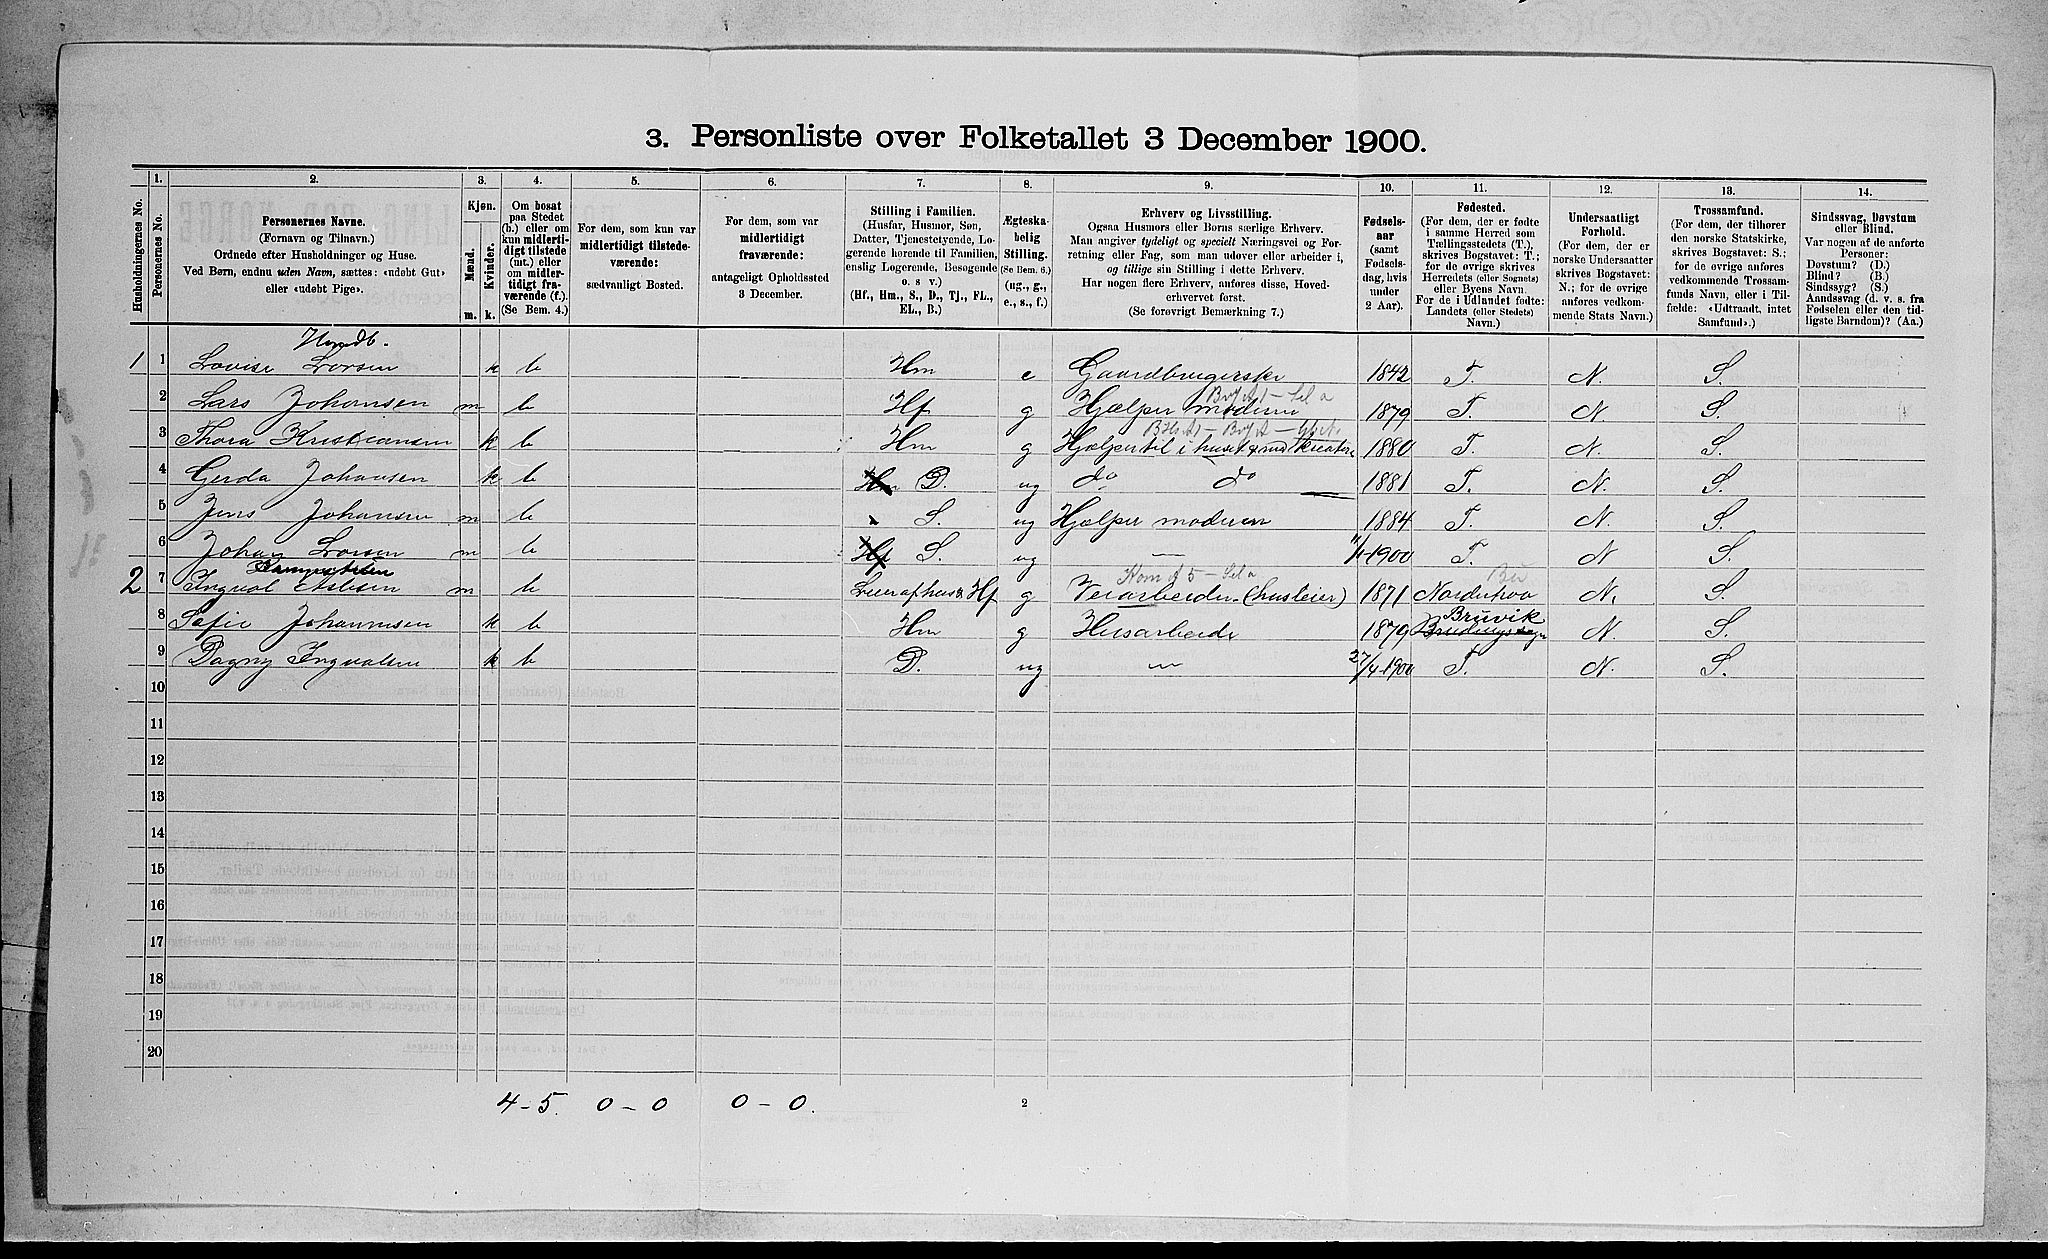 3. Personliste over Folketallet 3 December 1900.
Husholdningernes No.
1. Personernes No.
2. Personernes Navne.
(Fornavn og Tilnavn.)
Ordnede efter Husholdninger og Huse.
Ved Børn, endnu uden Navn, sættes: «udøbt Gut»
eller «udøbt Pige».
3. Kjøn.
Mænd. m.
Kvinder. k.
4. Om bosat
paa Stedet
(b.) eller om
kun midlerti-
digt tilstede
(mt.) eller
om midler-
tidigt fra-
værende (f.).
(Se Bem. 4.)
5. For dem, som kun var
midlertidigt tilstede-
værende:
sædvanligt Bosted.
6. For dem, som var
midlertidigt
fraværende:
antageligt Opholdssted
3 December.
7. Stilling i Familien.
(Husfar, Husmor, Søn,
Datter, Tjenestetyende, Lo-
gerende hørende til Familien,
enslig Logerende, Besøgende
o. s. v.)
(Hf., Hm., S., D., Tj., FL.,
EL., B.)
8. Ægteska-
belig
Stilling.
(Se Bem. 6.)
(ug., g.,
e., s., f.)
9. Erhverv og Livsstilling.
Ogsaa Husmors eller Børns særlige Erhverv.
Man angiver tydeligt og specielt Næringsvei og For-
retning eller Fag, som man udover eller arbeider i,
og tillige sin Stilling i dette Erhverv.
Har nogen flere Erhverv, anføres disse, Hoved-
erhvervet først.
(Se forøvrigt Bemærkning 7.)
10. Fødsels-
aar
(samt
Fødsels-
dag, hvis
under
2 Aar).
11. Fødested.
(For dem, der er fødte
i samme Herred som
Tællingsstedets (T.),
skrives Bogstavet: T.;
for de øvrige skrives
Herredets (eller Sognets)
eller Byens Navn.
For de i Udlandet fødte:
Landets (eller Stedets)
Navn.)
12. Undersaatligt
Forhold.
(For dem, der er
norske Undersaatter
skrives Bogstavet:
N.; for de øvrige
anføres vedkom-
mende Stats Navn.)
13. Trossamfund.
(For dem, der tilhører
den norske Statskirke,
skrives Bogstavet: S.;
for de øvrige anføres
vedkommende Trossam-
funds Navn, eller i Til-
fælde: «Udtraadt, intet
Samfund».)
14. Sindssvag, Døvstum
eller Blind.
Var nogen af de anførte
Personer:
Døvstum? (D.)
Blind? (B.)
Sindssyg? (S.)
Aandssvag (d. v. s. fra
Fødselen eller den tid-
ligste Barndom)? (Aa.)
1 1 Lovise Larsen k b Hm e Gaardbrugerske 1842 T. N. S.
2 Lars Johansen m b Hf g Hjælper moderen 1879 T. N S.
3 Thora Kristiansen k b Hm g Hjælper til i huset & med kreature 1880 T. N. S.
4 Gerda Johansen k b Hm D. ug do do 1881 T. N. S.
5 Jens Johansen m b S. ug Hjælper moderen 1884 T. N. S.
6 Johan Larsen m b Hf S. ug — 1900 T. N S.
2 7 Ingval Aslesen m b Leier af huset Hf g Veiarbeider (husleier) 1871 Norderhov N. S.
8 Sofie Johannesen k b Hm g Husarbeide 1879 Bruvik N. S.
9 Dagny Ingvalsen k b D. ug — 27/4-1900 T. N. S.
10
11
12
13
14
15
16
17
18
19
20
4-5. 0-0 0-0. 2